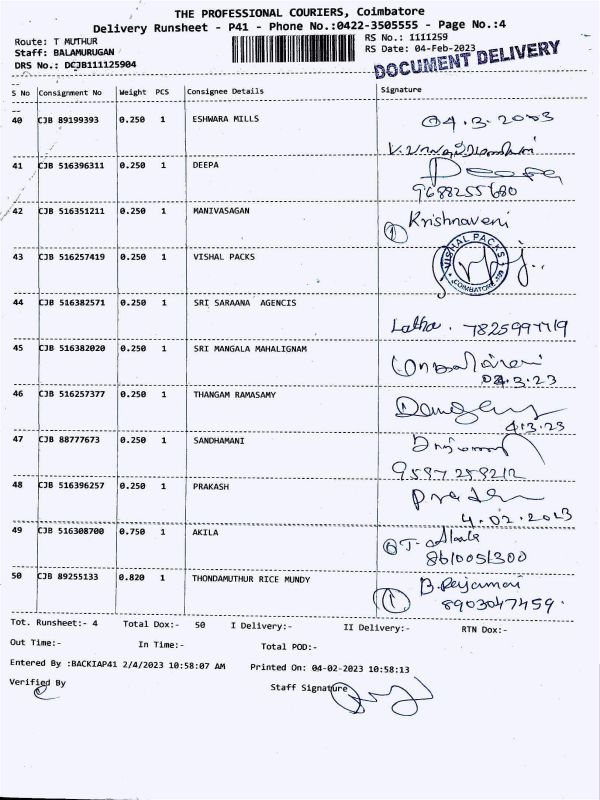 THE PROFESSIONAL COURIERS, Coimbatore
Delivery Runsheet - P41 - Phone No.:0422-3505555 - Page No.:4
Route: T MUTHUR
RS No.: 1111259
Staff: BALAMURUGAN
RS Date: 04-Feb-2023
DRS No.: DCJB111125904
DOCUMENT DELIVERY
S No Consignment No Weight PCS Consignee Details Signature
40 CJB 89199393 0.250 1 ESHWARA MILLS
04.3.2003
41 CJB 516396311 0.250 1 DEEPA
Deepa
9688255680
42 CJB 516351211 0.250 1 MANIVASAGAN
Krishnaveni
1
43 CJB 516257419 0.250 1 VISHAL PACKS
VISHAL PACKS
COIMBATORE
44 CJB 516382571 0.250 1 SRI SARAANA AGENCIS
Latha. 7825997719
45 CJB 516382020 0.250 1 SRI MANGALA MAHALIGNAM
04.3.23
46 CJB 516257377 0.250 1 THANGAM RAMASAMY
4.3.23
47 CJB 88777673 0.250 1 SANDHAMANI
9597259212
48 CJB 516396257 0.250 1 PRAKASH
4.02.2023
49 CJB 516308700 0.750 1 AKILA
8610051300
50 CJB 89255133 0.820 1 THONDAMUTHUR RICE MUNDY
1
8903047459.
Tot. Runsheet:- 4 Total Dox:- 50 I Delivery:- II Delivery:- RTN Dox:-
Out Time:- In Time:- Total POD:-
Entered By :BACKIAP41 2/4/2023 10:58:07 AM Printed On: 04-02-2023 10:58:13
Verified By Staff Signature